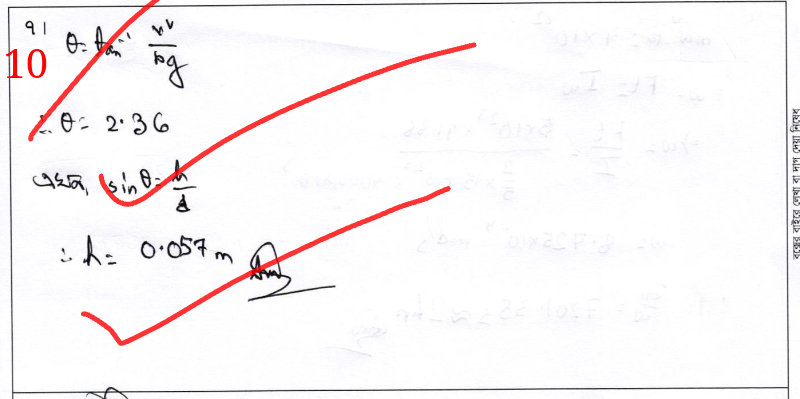 91
10
θ = tan⁻¹ v²/rg
∴ θ = 2.36
এখন, sin θ = h/d
∴ h = 0.057 m
বক্সের বাইরে লেখা বা দাগ দেয়া নিষেধ